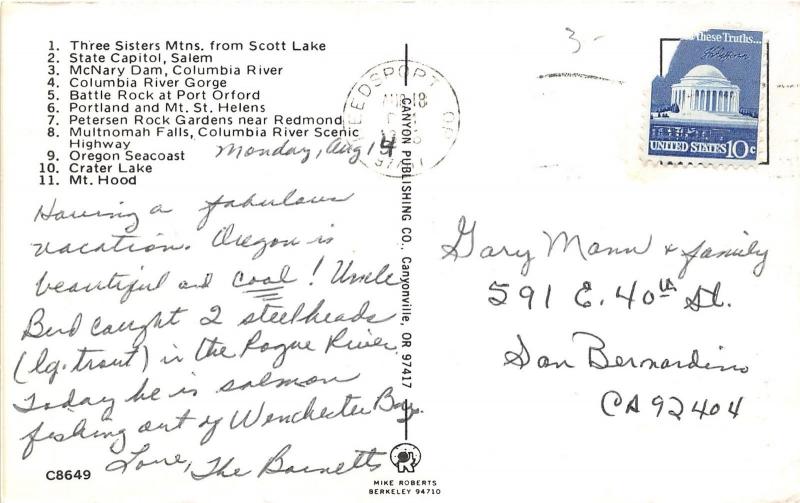 1. Three Sisters Mtns. from Scott Lake
2. State Capitol, Salem
3. McNary Dam, Columbia River
4. Columbia River Gorge
5. Battle Rock at Port Orford
6. Portland and Mt. St. Helens
7. Petersen Rock Gardens near Redmond
8. Multnomah Falls, Columbia River Scenic
Highway
9. Oregon Seacoast
10. Crater Lake
11. Mt. Hood
Monday, Aug 14
Having a fabulous
vacation. Oregon is
beautiful and cool! Uncle
Bud caught 2 steelheads
(lg. trout) in the Rogue River.
Today he is salmon
fishing out of Wenchester Bay.
Love, The Barnetts
C8649
CANYON PUBLISHING CO., Canyonville, OR 97417
MIKE ROBERTS
BERKELEY 94710
REEDSPORT OR
AUG 18
3-
these Truths...
UNITED STATES 10c
Gary Mann & family
591 E. 40th St.
San Bernardino
CA 92404